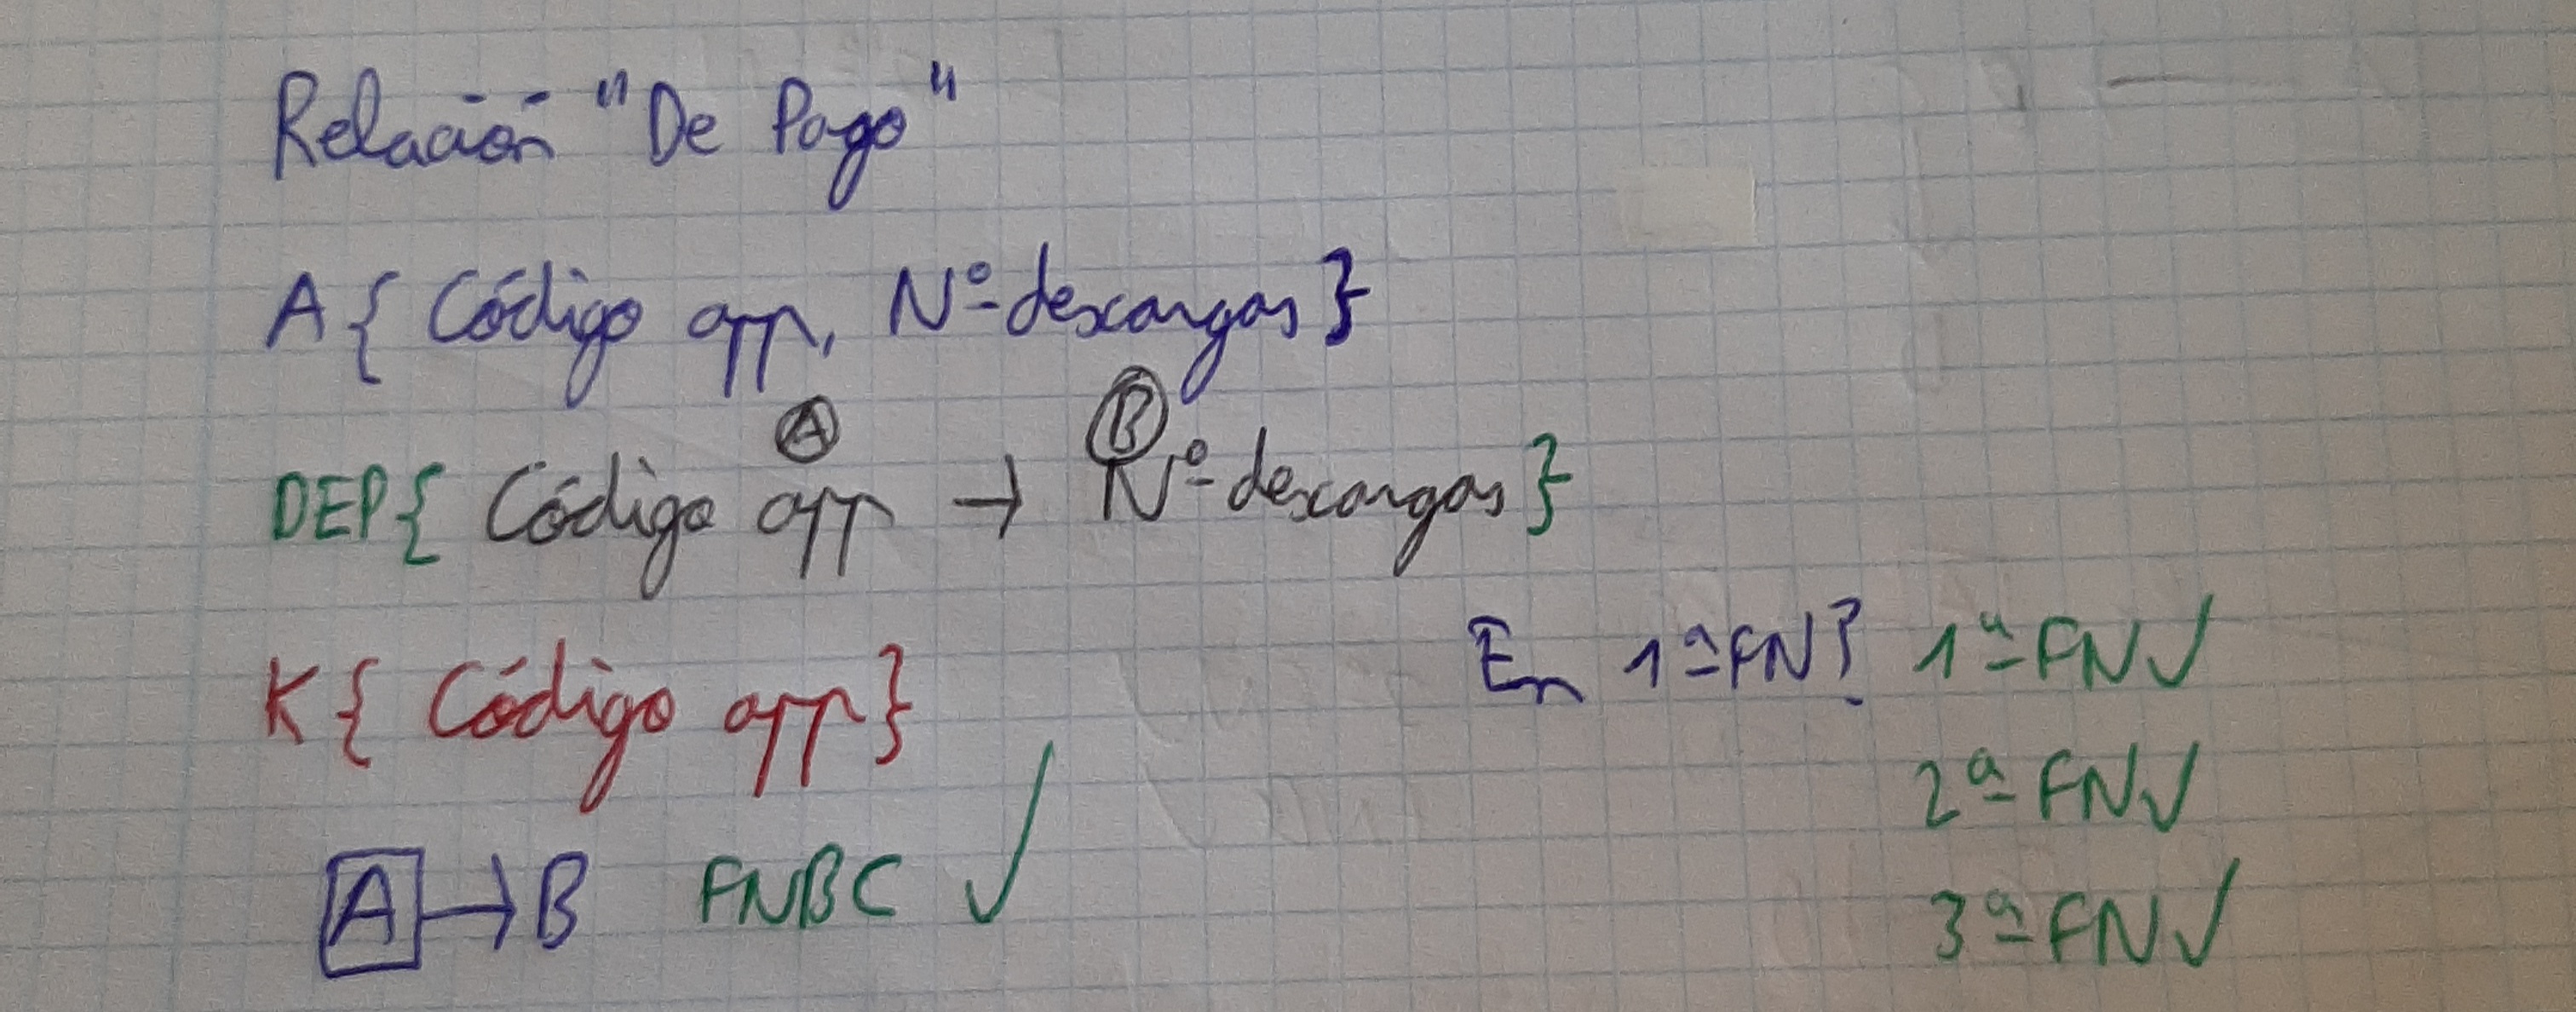 Relación "De Pago"
A{ Código app, Nº descargas}
A B
DEP{ Código app → Nº descargas}
K{ Código app}
En 1ªFN? 1ªFN✓
2ªFN✓
A → B FNBC ✓
3ªFN✓